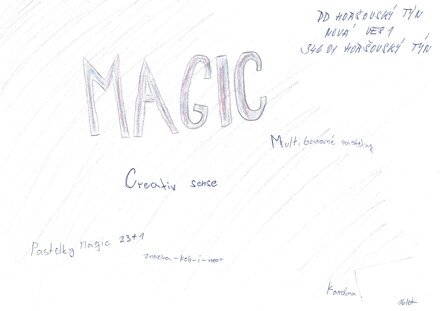 DD HORŠOVSKÝ TÝN
NOVÁ VES 1
346 01 HORŠOVSKÝ TÝN
MAGIC
Multibarevné pastelky
Creativ sense
Pastelky Magic 23+1
značka-koh-i-noor
Karolína
16let